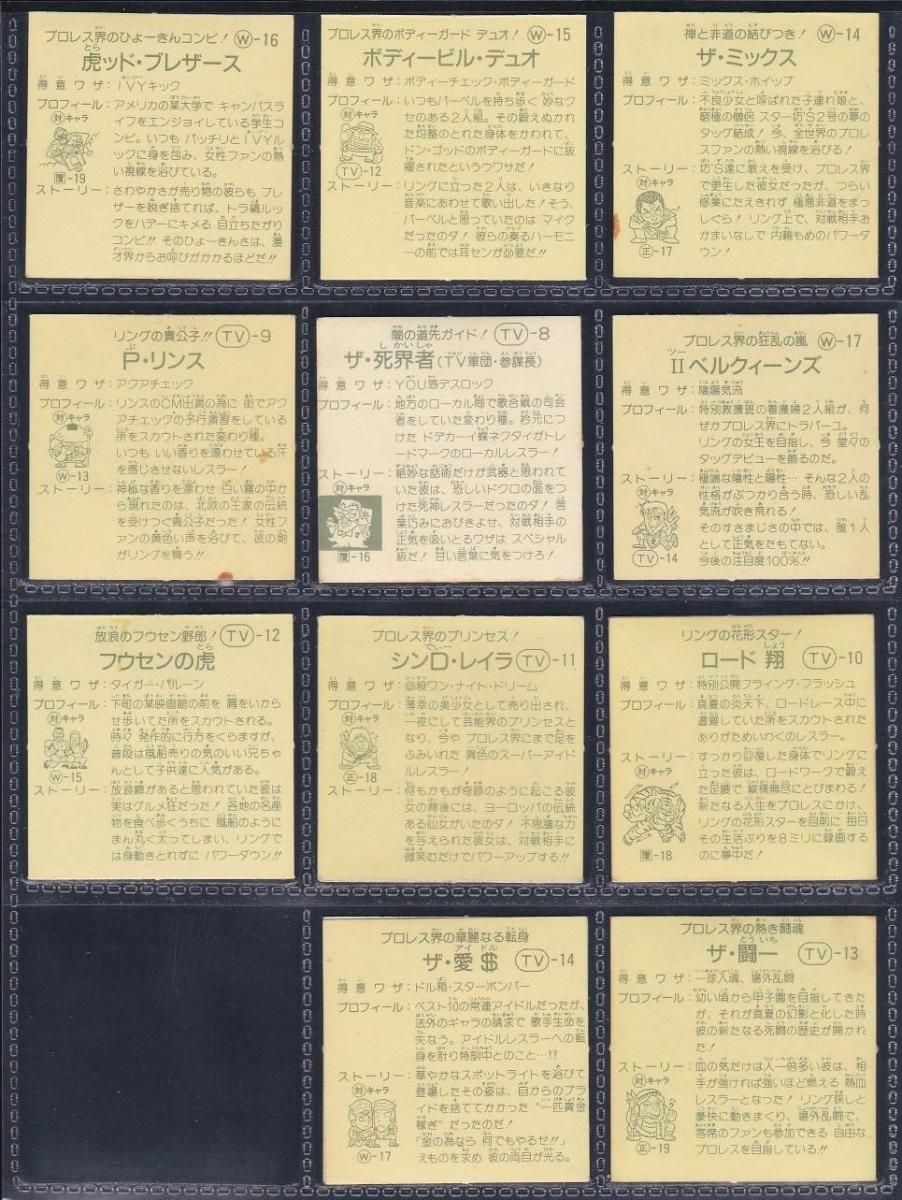 プロレス界のひょーきんコンビ! W-16
虎ッド・ブレザース
得意ワザ:IVYキック
プロフィール:アメリカの某大学で キャンパスライ
フをエンジョイしている学生コ
ンビ。いつも バッチリとIVYル
ックに身を包み、女性ファンの熱
い視線を浴びている。
対キャラ
-19
ストーリー:さわやかさが売り物の彼らも ブレ
ザーを脱ぎ捨てれば、トラ縞ルッ
クをハデーにキメる 目立ちたがり
コンビ!! そのひょーきんさは、漫
才界からお呼びがかかるほどだ!!
プロレス界のボディーガード デュオ! W-15
ボディービル・デュオ
得意ワザ:ボディーチェック・ボディーガード
プロフィール:いつもバーベルを持ち歩く 妙なク
セのある2人組。その鍛えぬかれ
た均整のとれた身体をかわれて、
ドン=ゴッドのボディーガードに抜
擢されたというウワサだ!
対キャラ
TV-12
ストーリー:リングに立った2人は、いきなり
音楽にあわせて歌い出した! そう、
バーベルと思っていたのは マイク
だったのダ! 彼らの奏るハーモニ
ーの前では耳センが必要だ!!
禅と非道の結びつき! W-14
ザ・ミックス
得意ワザ:ミックス・ホイップ
プロフィール:不良少女と呼ばれた子連れ娘と、
窮極の僧侶 スター坊'S2号の夢の
タッグ結成! 今、全世界のプロレ
スファンの熱い視線を浴びる!
ストーリー:坊'S達に教えを受け、プロレス界
で更生した彼女だったが、つらい
修業にたえきれず 極悪非道をまっ
しぐら! リング上で、対戦相手お
かまいなしで 内輪もめのパワーダ
ウン!
対キャラ
正-17
リングの貴公子!! TV-9
P・リンス
得意ワザ:アクアチェック
プロフィール:リンスのCM出演の為に 街でアク
アチェックの予行演習をしている
所をスカウトされた変わり種。
いつも いい香りを漂わせている汗
を感じさせないレスラー!
対キャラ
W-13
ストーリー:神秘な香りを漂わせ 白い霧の中か
ら現れたのは、北欧の王家の伝統
を受けつぐ貴公子だった! 女性フ
ァンの黄色い声を浴びて、彼の剣
がリングを舞う!!
闇の道先ガイド! TV-8
ザ・死界者(TV軍団・参謀長)
得意ワザ:YOU惑デスロック
プロフィール:地方のローカル局で歌合戦の司会
者をしていた変わり種。衿元につ
けた ドデカーイ蝶ネクタイがトレ
ードマークのローカルレスラー!
ストーリー:絶妙な話術だけが武器と思われて
いた彼は、恐しいドクロの面をつ
けた死神レスラーだったのダ! 言
葉巧みにおびきよせ、対戦相手の
正気を吸いとるワザは スペシャル
級だ! 甘い言葉に気をつけろ!
対キャラ
-16
プロレス界の狂乱の嵐 W-17
IIベルクィーンズ
得意ワザ:陰陽気流
プロフィール:特別救護班の看護婦2人組が、何
ぜかプロレス界にトラバーユ。
リングの女王を目指し、今 堂々の
タッグデビューを飾るのだ。
ストーリー:極端な陽性と陰性… そんな2人の
性格がぶつかり合う時、恐しい乱
気流が吹き荒れる!
そのすさまじさの中では、誰1人
として正気をたもてない。
今後の注目度100%!!
対キャラ
TV-14
放浪のフウセン野郎! TV-12
フウセンの虎
得意ワザ:タイガー・バルーン
プロフィール:下町の某映画館の前を 肩をいから
せ歩いてた所をスカウトされる。
時々 発作的に行方をくらますが、
普段は風船売りの気のいい兄ちゃ
んとして子供達に人気がある。
対キャラ
W-15
ストーリー:放浪癖があると思われていた彼は
実はグルメ狂だった! 各地の名産
物を食べ歩くうちに 風船のように
まん丸く太ってしまい、リングで
は身動きとれずに パワーダウン!!
プロレス界のプリンセス! TV-11
シンD・レイラ
得意ワザ:必殺ワン・ナイト・ドリーム
プロフィール:薄幸の美少女として売り出され、
一夜にして芸能界のプリンセスと
なり、今や プロレス界にまで足を
ふみいれた 異色のスーパーアイド
ルレスラー!
対キャラ
正-18
ストーリー:何もかもが奇跡のように起こる彼
女の背後には、ヨーロッパの伝統
ある仙女がいたのダ! 不思議な力
を与えられた彼女は、対戦相手に
微笑むだけでパワーアップする!!
リングの花形スター! TV-10
ロード 翔
得意ワザ:特別公開フライング・フラッシュ
プロフィール:真夏の炎天下、ロードレース中に
遭難していた所をスカウトされた
ありがためいわくのレスラー。
ストーリー:すっかり回復した身体でリングに
立った彼は、ロードワークで鍛え
た足腰で 縦横無尽にとびまわる!
新たなる人生をプロレスにかけ、
リングの花形スターを目前に 毎日
その生活ぶりを8ミリに録画する
のに夢中だ!
対キャラ
-18
プロレス界の華麗なる転身
ザ・愛$ TV-14
得意ワザ:ドル箱・スターボンバー
プロフィール:ベスト10の常連アイドルだったが、
法外のギャラの請求で 歌手生命を
失なう。アイドルレスラーへの転
身を計り特訓中とのこと…!?
ストーリー:華やかなスポットライトを浴びて
登場したその姿は、自からのプラ
イドを捨ててかかった “一匹賞金
稼ぎ” だったのだ!
「金の為なら 何でもやるぜ!!」
えものを求め 彼の両目が光る。
対キャラ
W-17
プロレス界の熱き闘魂
ザ・闘一 TV-13
得意ワザ:一球入魂、場外乱闘
プロフィール:幼い頃から甲子園を目指してきた
が、それが真夏の幻影と化した時
彼の新たなる死闘の歴史が開かれ
た!
ストーリー:血の気だけは人一倍多い彼は、相
手が強ければ強いほど燃える 熱血
レスラーとなった! リング狭しと
豪快に動きまくり、場外乱闘で、
客席のファンも参加できる 自由な
プロレスを目指している!!
対キャラ
正-19